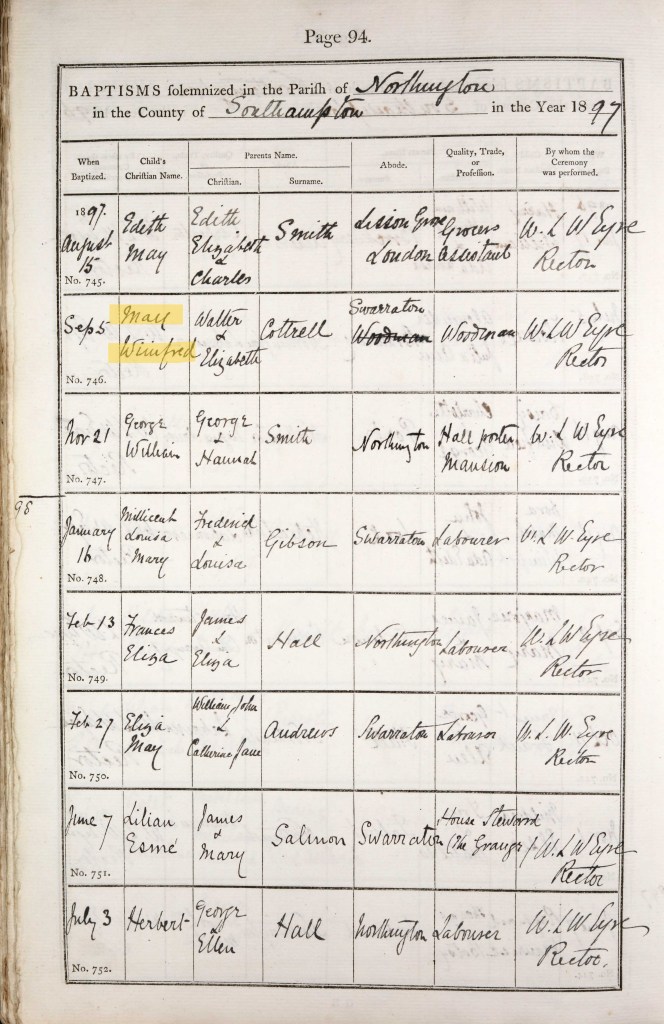 Page 94.
BAPTISMS solemnized in the Parish of Northington
in the County of Southampton in the Year 1897
When Baptized.
Child's Christian Name.
Parents Name.
Christian.
Surname.
Abode.
Quality, Trade, or Profession.
By whom the Ceremony was performed.
1897.
August 15
No. 745.
Edith May
Edith Elizabeth & Charles
Smith
Lisson Grove London
Grocers assistant
W. L W Eyre Rector
Sep 5
No. 746.
May Winifred
Walter & Elizabeth
Cottrell
Swarraton
Woodman
Woodman
W. L W Eyre Rector
Nov 21
No. 747.
George William
George & Hannah
Smith
Northington
Hall porter Mansion
W. L W Eyre Rector
98
January 16
No. 748.
Millicent Louisa Mary
Frederick & Louisa
Gibson
Swarraton
Labourer
W. L. W. Eyre Rector
Feb 13
No. 749.
Frances Eliza
James & Eliza
Hall
Northington
Labourer
W. L W Eyre Rector
Feb 27
No. 750.
Eliza May
William John & Catherine Jane
Andrews
Swarraton
Labourer
W. L. W. Eyre Rector
June 7
No. 751.
Lilian Esmé
James & Mary
Salmon
Swarraton
House Steward (The Grange)
W L W Eyre Rector
July 3
No. 752.
Herbert
George & Ellen
Hall
Northington
Labourer
W. L W Eyre Rector.